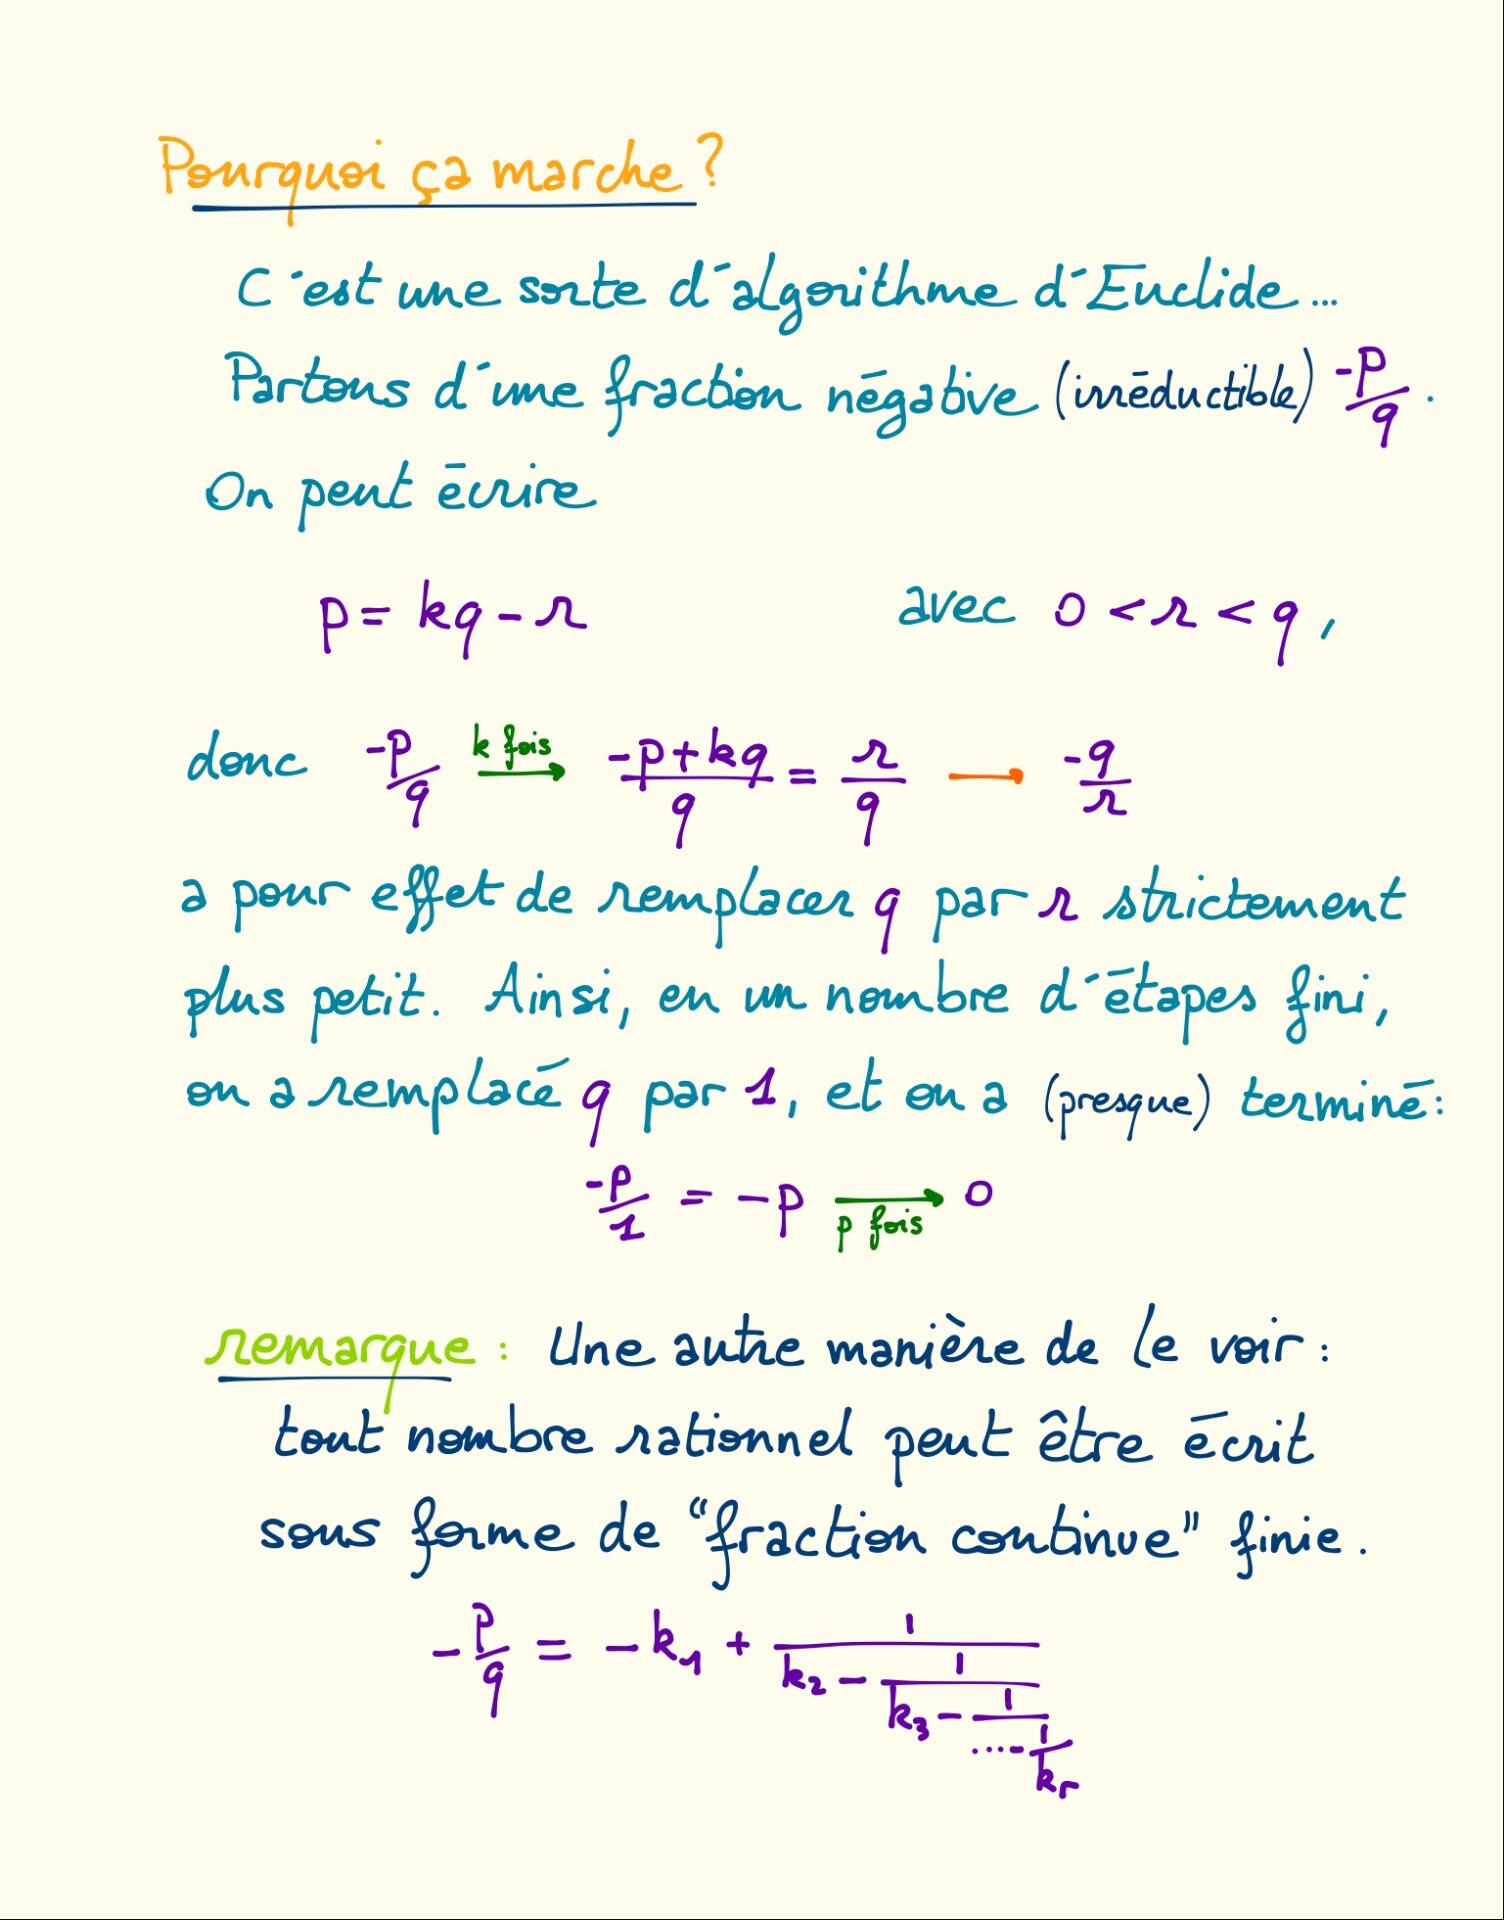 Pourquoi ça marche ?
C'est une sorte d'algorithme d'Euclide...
Partons d'une fraction négative (irréductible) -p/q.
On peut écrire
p = kq - r avec 0 < r < q,
donc -p/q k fois → (-p+kq)/q = r/q → -q/r
a pour effet de remplacer q par r strictement
plus petit. Ainsi, en un nombre d'étapes fini,
on a remplacé q par 1, et on a (presque) terminé :
-p/1 = -p → p fois 0
remarque : Une autre manière de le voir :
tout nombre rationnel peut être écrit
sous forme de "fraction continue" finie.
-p/q = -k₁ + 1/(k₂ - 1/(k₃ - 1/(.... - 1/kᵣ)))